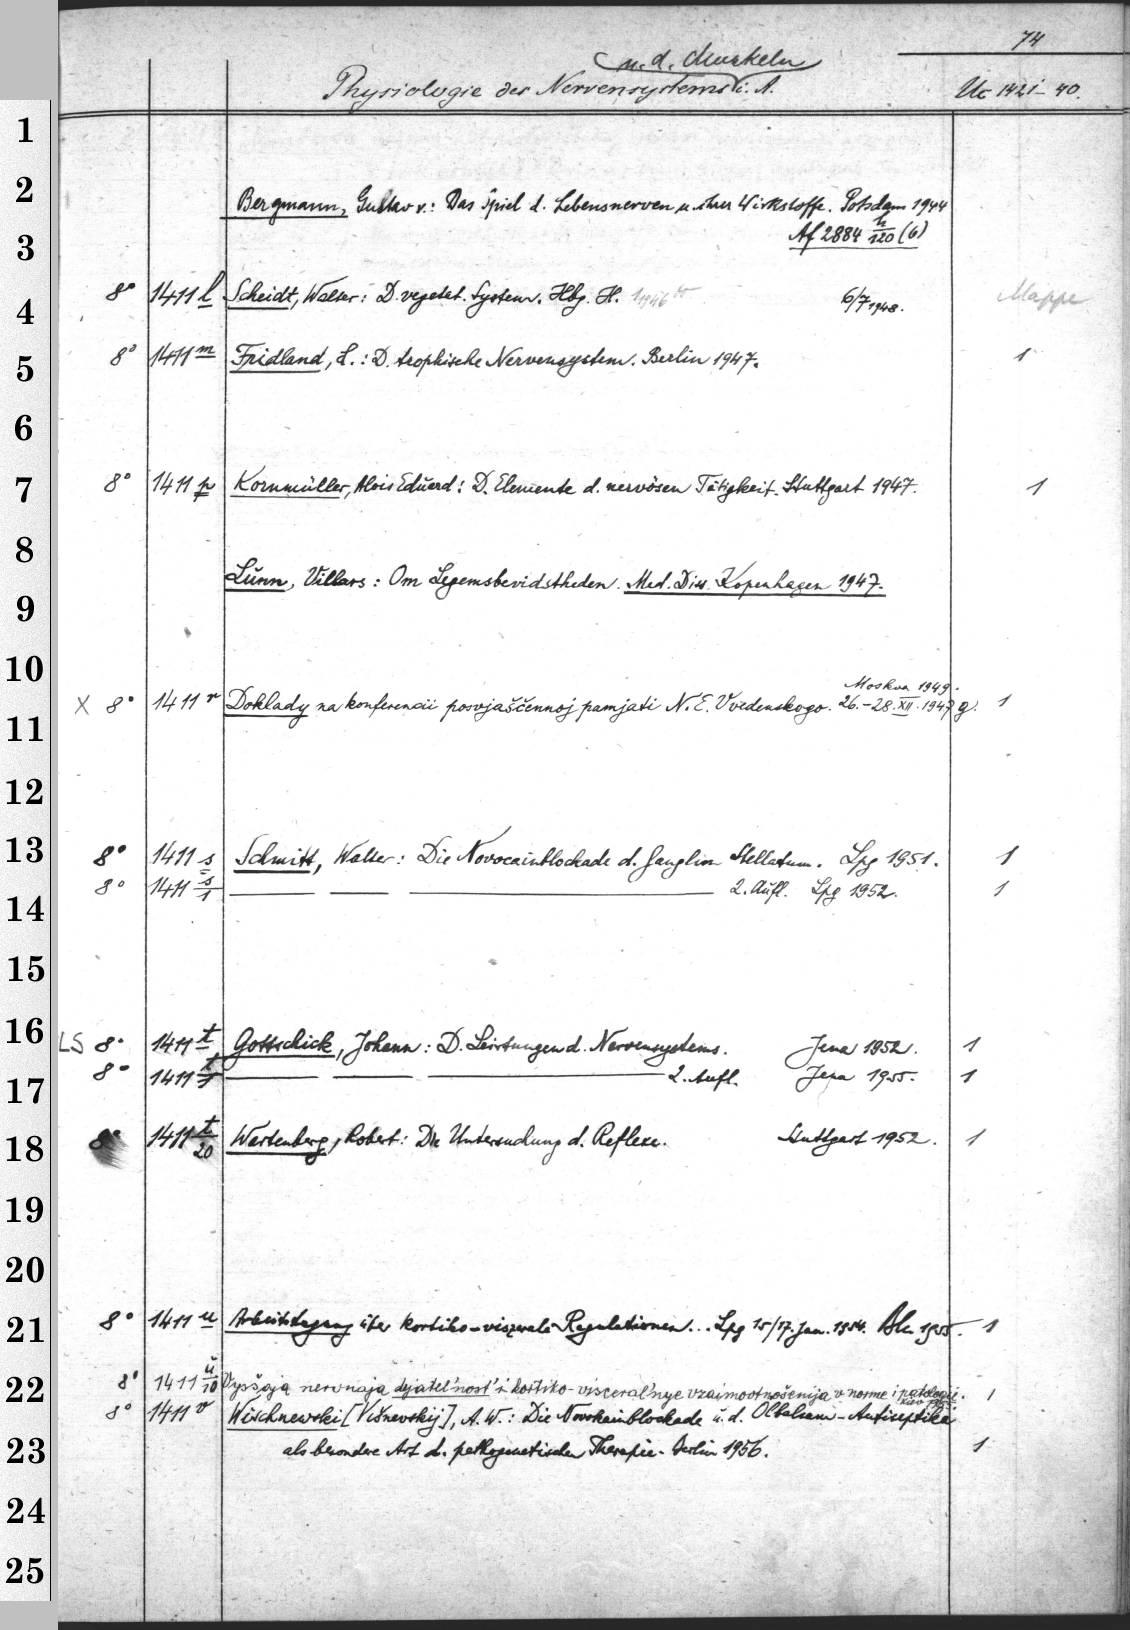 74
u. d. Muskeln
Physiologie des Nervensystems i. A. Uc 1421-40.
1
2
Bergmann, Gustav v.: Das Spiel d. Lebensnerven u. ihrer Wirkstoffe. Potsdam 1944
3
Af 2884 h/120 (6)
8° 1411 l Scheidt, Walter: D. vegetat. System. Hbg. H. 6/7 1948. Mappe
4
8° 1411 m Fridland, L.: D. trophische Nervensystem. Berlin 1947. 1
5
6
7 8° 1411 p Kornmüller, Alois Eduard: D. Elemente d. nervösen Tätigkeit. Stuttgart 1947. 1
8
Lunn, Villars: Om Legemsbevidstheden. Med. Diss. Kopenhagen 1947.
9
10
Moskva 1949.
X 8° 1411 r Doklady na konferencii posvjaščennoj pamjati N. E. Vvedenskogo. 26.-28. XII. 1947 g. 1
11
12
13 8° 1411 s Schmitt, Walter: Die Novocainblockade d. Ganglion Stellatum. Lpg 1951. 1
8° 1411 s/1 — — — 2. Aufl. Lpg 1952. 1
14
15
16 LS 8° 1411 t Gottschick, Johann: D. Leistungen d. Nervensystems. Jena 1952. 1
8° 1411 t/1 — — — 2. Aufl. Jena 1955. 1
17
18 8° 1411 t/20 Wartenberg, Robert: Die Untersuchung d. Reflexe. Stuttgart 1952. 1
19
20
21 8° 1411 u Arbeitstagung über kortiko-viszerale Regulationen... Lpg 15/17. Jan. 1954. Bln 1955. 1
22 8° 1411 u/10 Vysšaja nervnaja dejatel'nost' i kortiko-visceral'nye vzaimootnošenija v norme i patologii. 1
8° 1411 v Wischnewski [Višnevskij], A. W.: Die Novokainblockade u. d. Ölbalsam-Antiseptika
23 als besondere Art d. pathogenetischen Therapie. Berlin 1956. 1
24
25